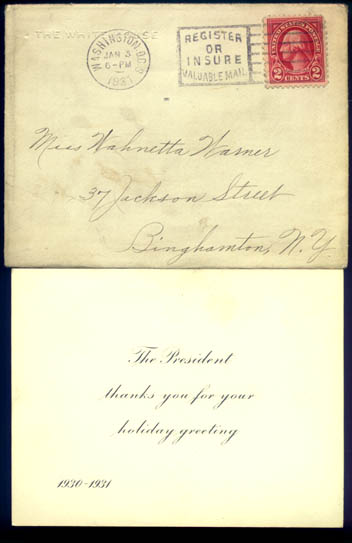 THE WHITE HOUSE
WASHINGTON, D.C.
JAN 3
6-PM
1931
REGISTER
OR
INSURE
VALUABLE MAIL
UNITED STATES POSTAGE
2 CENTS 2
Miss Wahnetta Warner
37 Jackson Street
Binghamton, N.Y.
The President
thanks you for your
holiday greeting
1930-1931